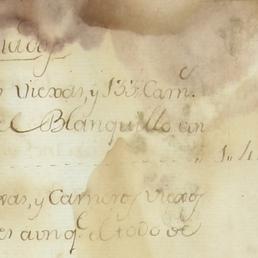 Viexas, y 133 Carn.
el Blanquillo en
1„4
xas, y Carneros Viexos
es aunq.e el todo de